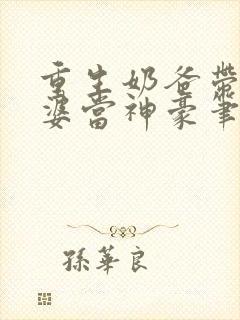 重生奶爸带
婆当神豪笔
孫華良